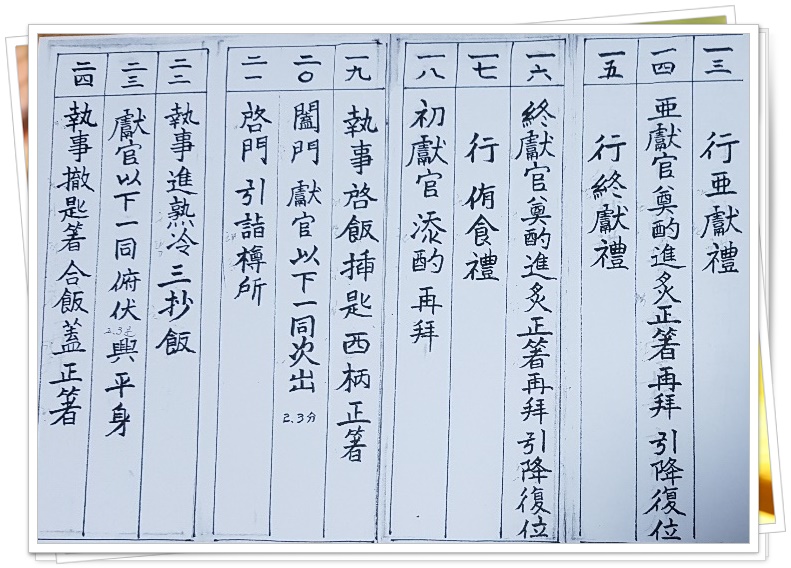 一三 行亜獻禮
一四 亜獻官奠酌進炙正箸再拜 引降復位
一五 行終獻禮
一六 終獻官奠酌進炙正箸再拜引降復位
一七 行侑食禮
一八 初獻官添酌 再拜
一九 執事啓飯揷匙西柄正箸
二〇 闔門 獻官以下一同次出 2.3分
二一 啓門 引詣樽所
二二 執事進熟冷三抄飯
二三 獻官以下一同俯伏 興平身
二四 執事撤匙箸合飯蓋正箸